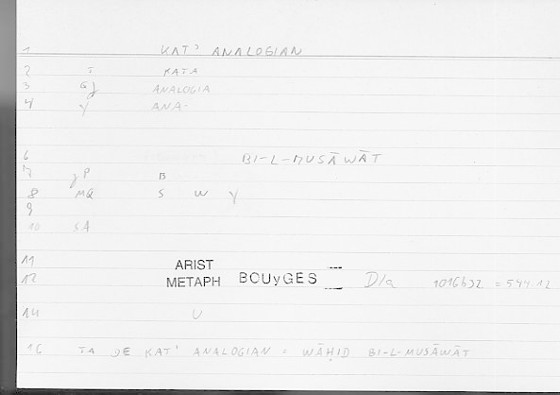 1 KAT' ANALOGIAN
2 T KATA
3 GJ ANALOGIA
4 Y ANA-
6 BI-L-MUSĀWĀT
7 JP B
8 MQ S W Y
9
10 SA
11 ARIST
12 METAPH BOUyGES Dla 1016b32 = 544.12
14 U
16 TA DE KAT' ANALOGIAN = WĀḤID BI-L-MUSĀWĀT